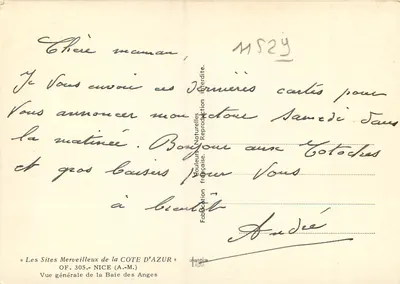 Chère maman,
11529
Je vous envoie ces dernières cartes pour
vous annoncer mon retour Samedi dans
la matinée. Bonjour aux Totoches
et gros baisers pour vous
à bientôt
André
« Les Sites Merveilleux de la COTE D'AZUR »
OF. 305.- NICE (A.-M.)
Vue générale de la Baie des Anges
Couleurs Naturelles
Fabrication française. Reproduction interdite.